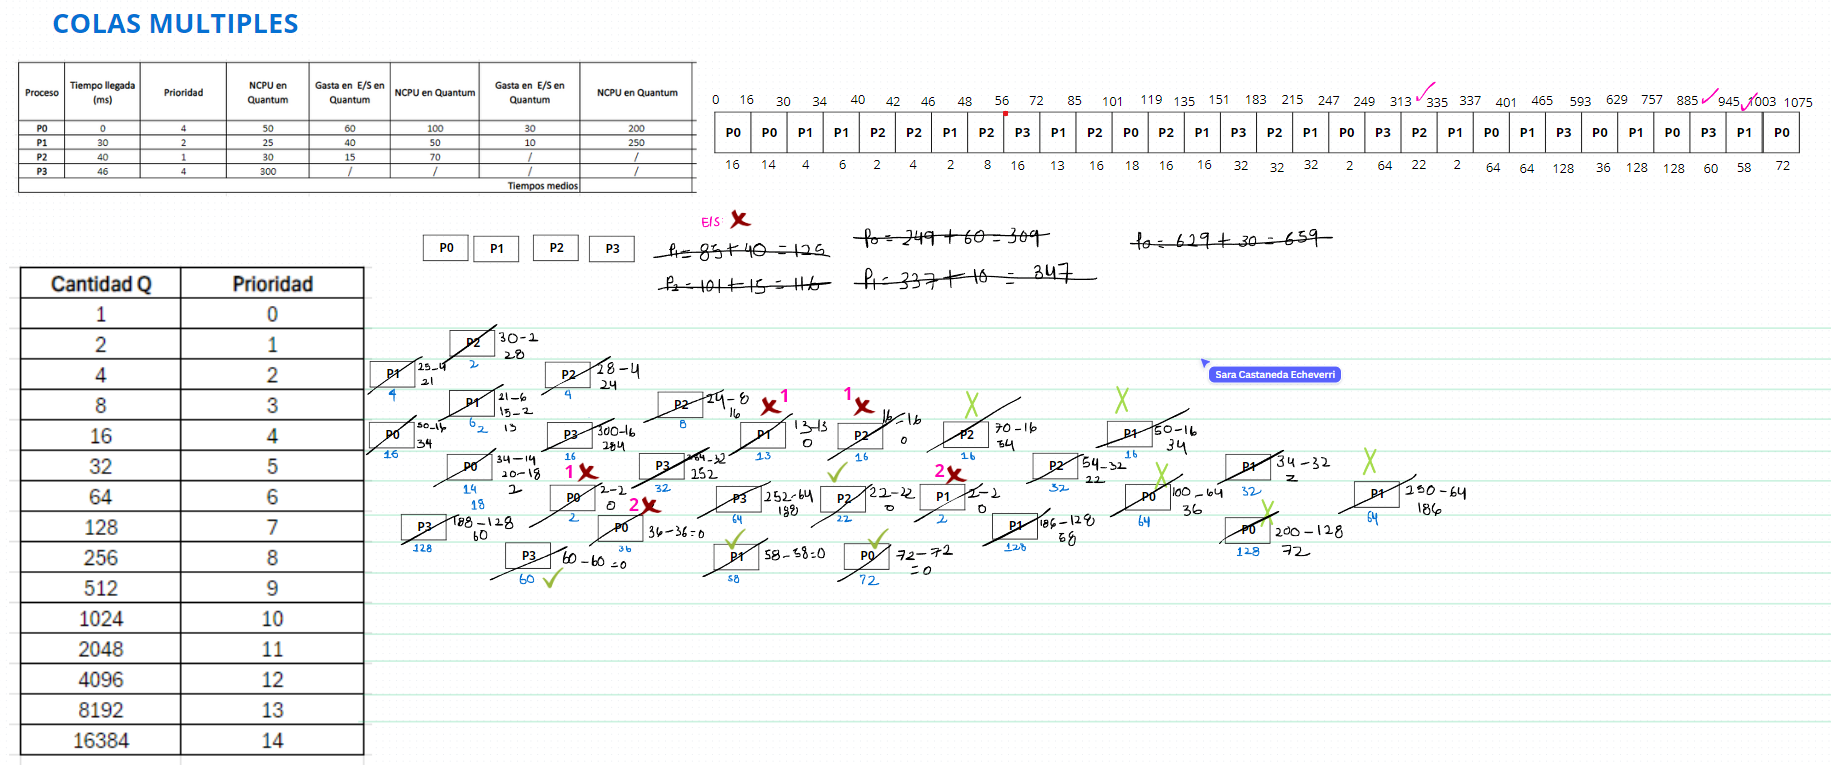 COLAS MULTIPLES
Proceso Tiempo llegada (ms) Prioridad NCPU en Quantum Gasta en E/S en Quantum NCPU en Quantum Gasta en E/S en Quantum NCPU en Quantum
P0 0 4 50 60 100 30 200
P1 30 2 25 40 50 10 250
P2 40 1 30 15 70 / /
P3 46 4 300 / / / /
Tiempos medios
0 16 30 34 40 42 46 48 56 72 85 101 119 135 151 183 215 247 249 313 335 337 401 465 593 629 757 885 945 1003 1075
P0 P0 P1 P1 P2 P2 P1 P2 P3 P1 P2 P0 P2 P1 P3 P2 P1 P0 P3 P2 P1 P0 P1 P3 P0 P1 P0 P3 P1 P0
16 14 4 6 2 4 2 8 16 13 16 18 16 16 32 32 32 2 64 22 2 64 64 128 36 128 128 60 58 72
E/S:
P0 P1 P2 P3
P1 = 85 + 40 = 125
P0 = 249 + 60 = 309
P0 = 629 + 30 = 659
P2 = 101 + 15 = 116
P1 = 337 + 10 = 347
Cantidad Q Prioridad
1 0
2 1
4 2
8 3
16 4
32 5
64 6
128 7
256 8
512 9
1024 10
2048 11
4096 12
8192 13
16384 14
P2 30-2
28
2
P1 25-4
21
4
P2 28-4
24
4
Sara Castaneda Echeverri
P1 21-6
15-2
13
6 2
P2 24-8
16
8
1
1
P0 50-16
34
16
P3 300-16
284
16
P1 13-13
0
13
P2 16-16
0
16
P2 70-16
54
16
P1 50-16
34
16
P0 34-14
20-18
2
14
18
1
P3 284-32
252
32
2
P2 54-32
22
32
P1 34-32
2
32
P0 2-2
0
2
2
P3 252-64
188
64
P2 22-22
0
22
P1 2-2
0
2
P0 100-64
36
64
P1 250-64
186
64
P3 188-128
60
128
P0 36-36=0
36
P1 186-128
58
128
P0 200-128
72
128
P3 60-60=0
60
P1 58-58=0
58
P0 72-72
=0
72